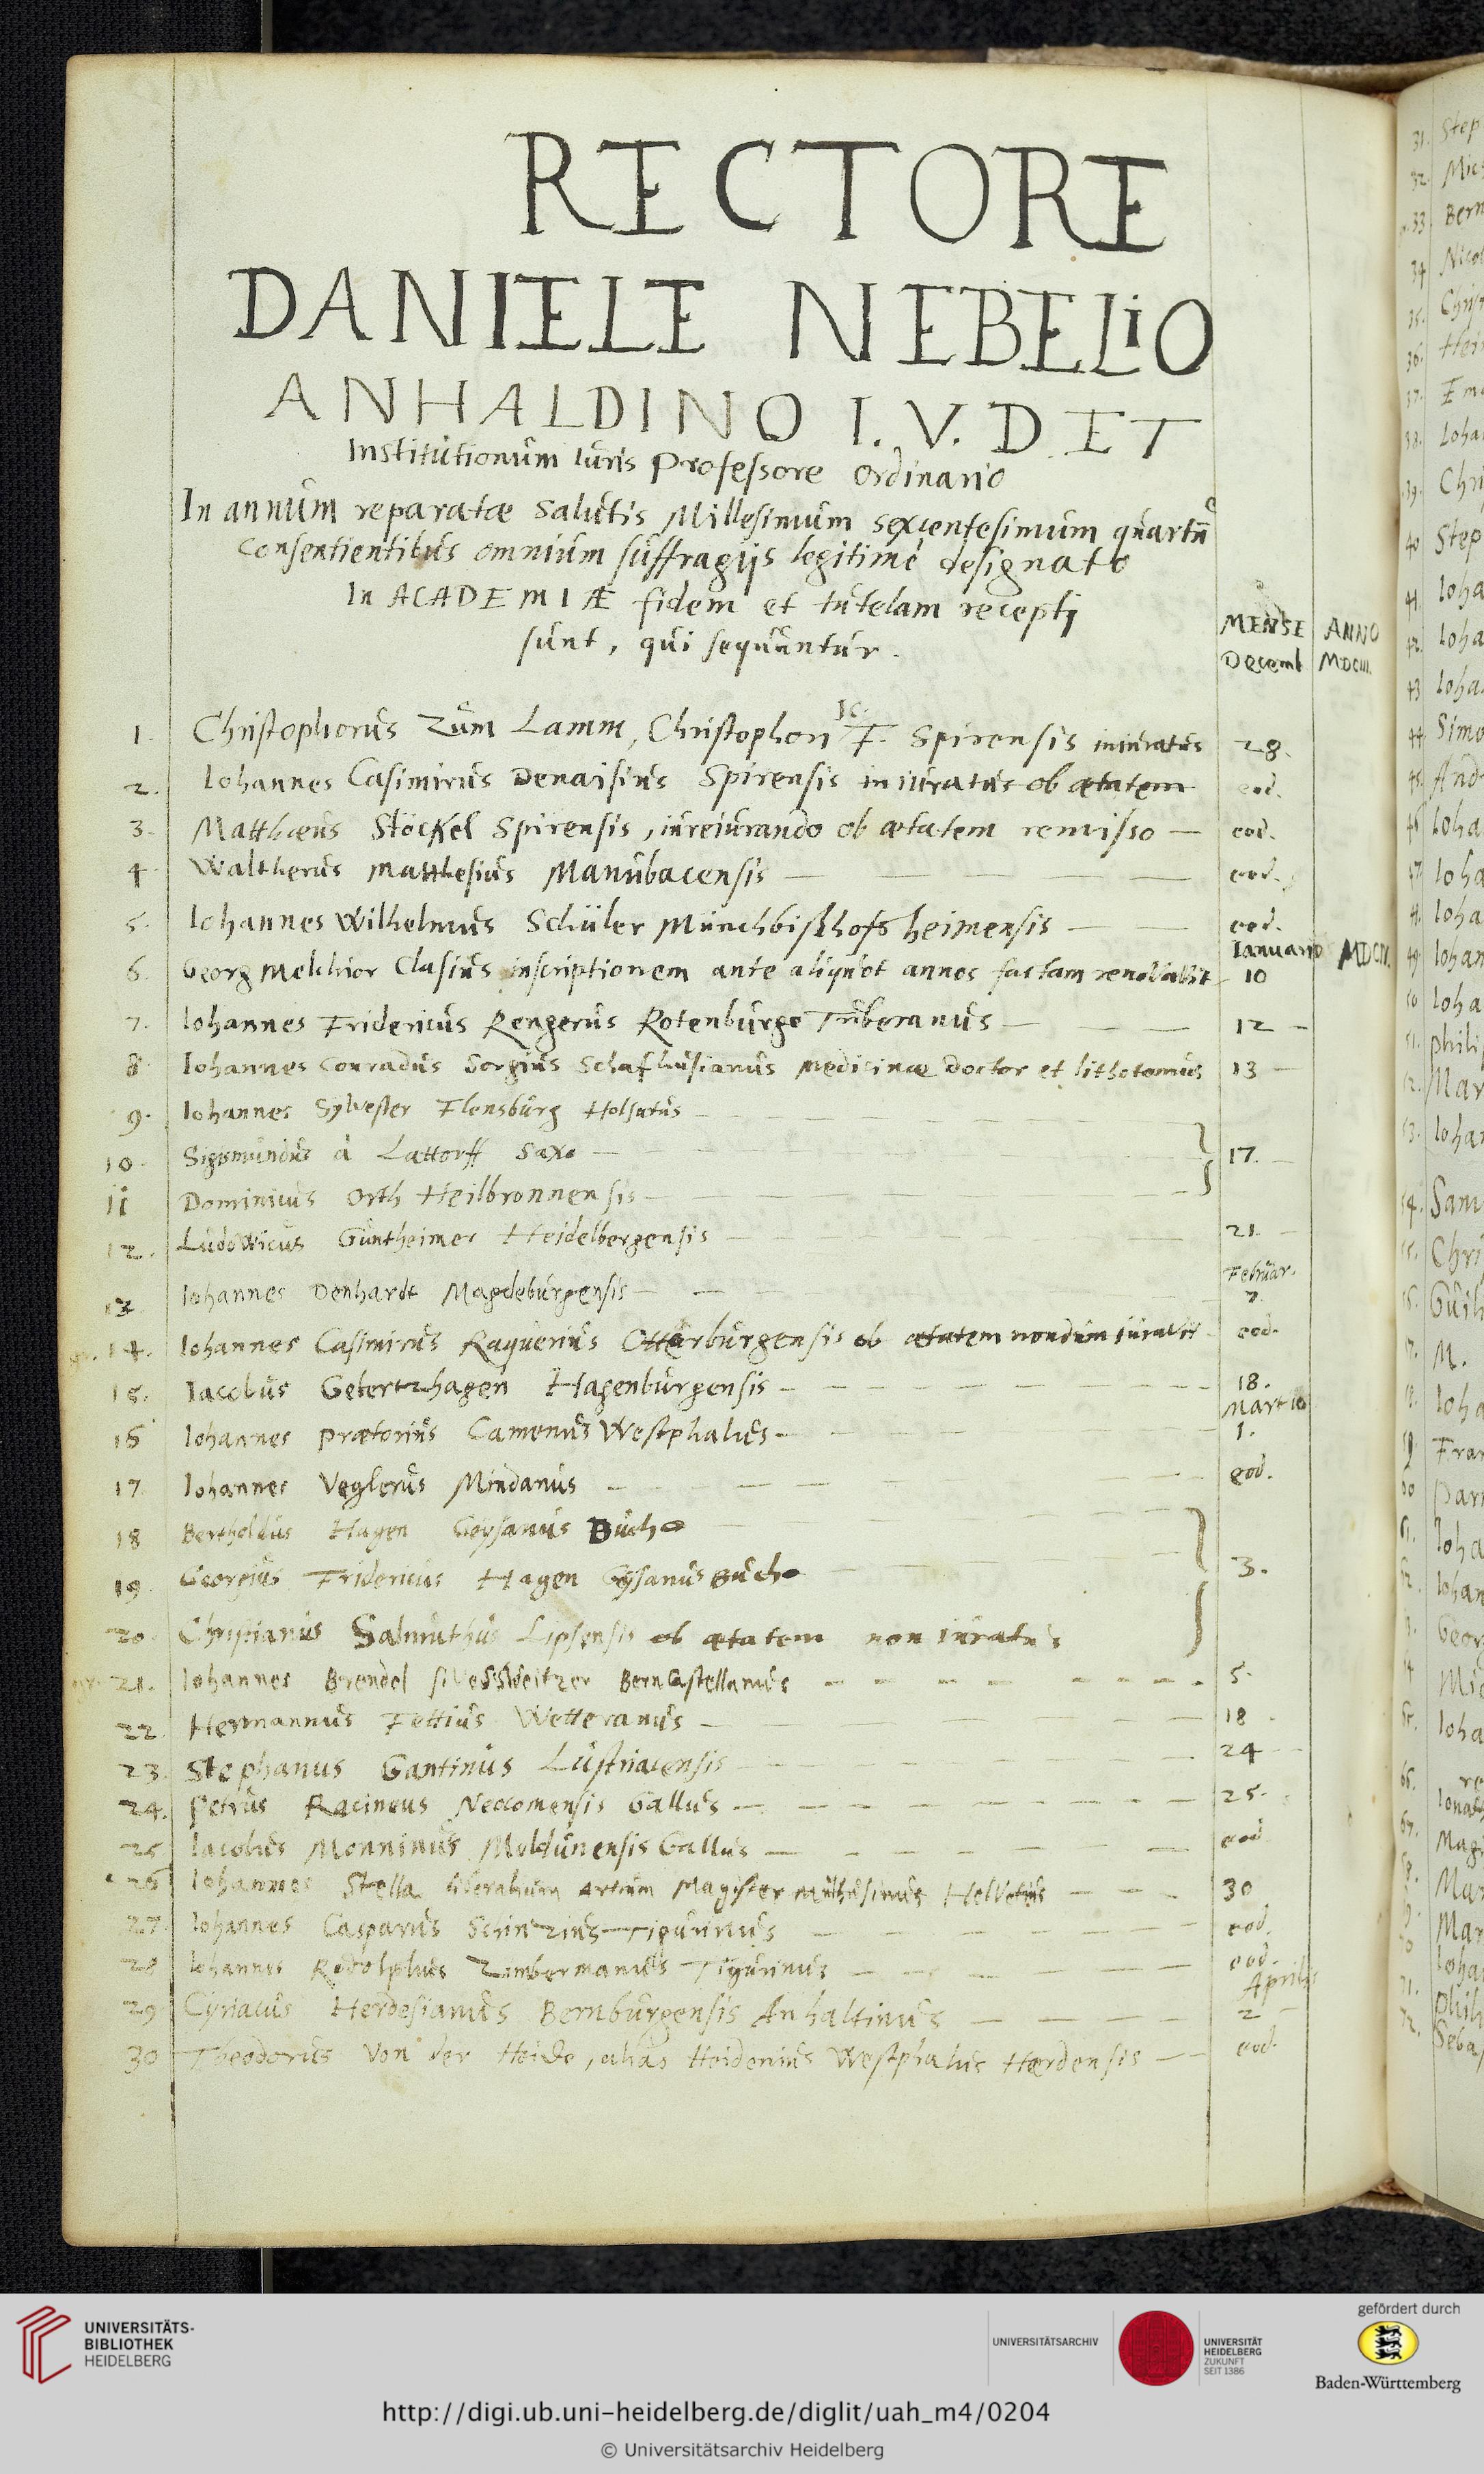 RECTORE
DANIELE NEBELIO
ANHALDINO I. V. D. ET
Institutionum Iuris Professore Ordinario
In annum reparatæ Salutis Millesimum sexcentesimum quartū
consentientibus omnium suffragijs legitimè designato
In ACADEMIÆ fidem et tutelam recepti
sunt, qui sequuntur.
MENSE ANNO
Decemb MDCIII.
1. Christophorus Zum Lamm, Christophori Jc. F. Spirensis iniuratus 28.
2. Iohannes Casimirus Denaisius Spirensis iniuratus ob ætatem eod.
3. Matthæus Stöckel Spirensis, iureiurando ob ætatem remisso — eod.
4. Waltherus Matthesius Manubacensis — eod.
5. Iohannes Wilhelmus Schüler Münchbischofsheimensis — eod.
Ianuario MDCIV.
6. Georg Melchior Clasius inscriptionem ante aliquot annos factam renovavit 10
7. Iohannes Fridericus Rengerus Rotenburgo Tuberanus — 12
8. Iohannes Conradus Sorgius Schafhusianus Medicinæ Doctor et lithotomus 13
9. Iohannes Sylvester Flensburg Holsatus
10. Sigismundus à Lattorff Saxo — 17.
11 Dominicus Orth Heilbronnensis
12. Ludowicus Guntheimer Heidelbergensis — 21.
Februar.
13. Iohannes Denhardt Magdeburgensis — 7.
14. Iohannes Casimirus Raquerius Otterburgensis ob ætatem nondum iuravit eod.
15. Iacobus Getertzhagen Hagenburgensis — 18.
Martio
16 Iohannes Prætorius Camenus Westphalus — 1.
17 Iohannes Veglerus Mindanus — eod.
18 Bertholdus Hagen Geysanus Bucho
19. Georgius Fridericus Hagen Gysanus Bucho 3.
20. Christianus Salmuthus Lipsensis ob ætatem non iuratus
21. Iohannes Brendel Bern Castellanus — 5.
22. Hermannus Fettius Wetteranus — 18
23. Stephanus Gantinus Lustriacensis — 24
24. Petrus Racineus Neocomensis Gallus — 25.
25 Iacobus Monninus Moldunensis Gallus — eod.
26 Iohannes Stella liberalium artium Magister Mulhusinus Helvetius — 30
27. Iohannes Casparus Schintzius Tigurinus — eod.
28 Iohannes Rodolphus Zimbermanus Tigurinus — eod.
Aprilis
29 Cyriacus Herdesianus Bernburgensis Anhaltinus — 2
30 Theodorus Von der Heide, alias Heidenius Westphalus Hærdensis — eod.
31. Step
32. Mic
33. Bern
34 Nicol
35. Chris
36. Her
37. Em
38. Ioha
39. Chri
40 Step
41. Ioha
42. Ioha
43 Ioha
44 Simo
45. And
46 Ioha
UNIVERSITÄTS-
BIBLIOTHEK
HEIDELBERG
UNIVERSITÄTSARCHIV
UNIVERSITÄT
HEIDELBERG
ZUKUNFT
SEIT 1386
gefördert durch
Baden-Württemberg
http://digi.ub.uni-heidelberg.de/diglit/uah_m4/0204
© Universitätsarchiv Heidelberg